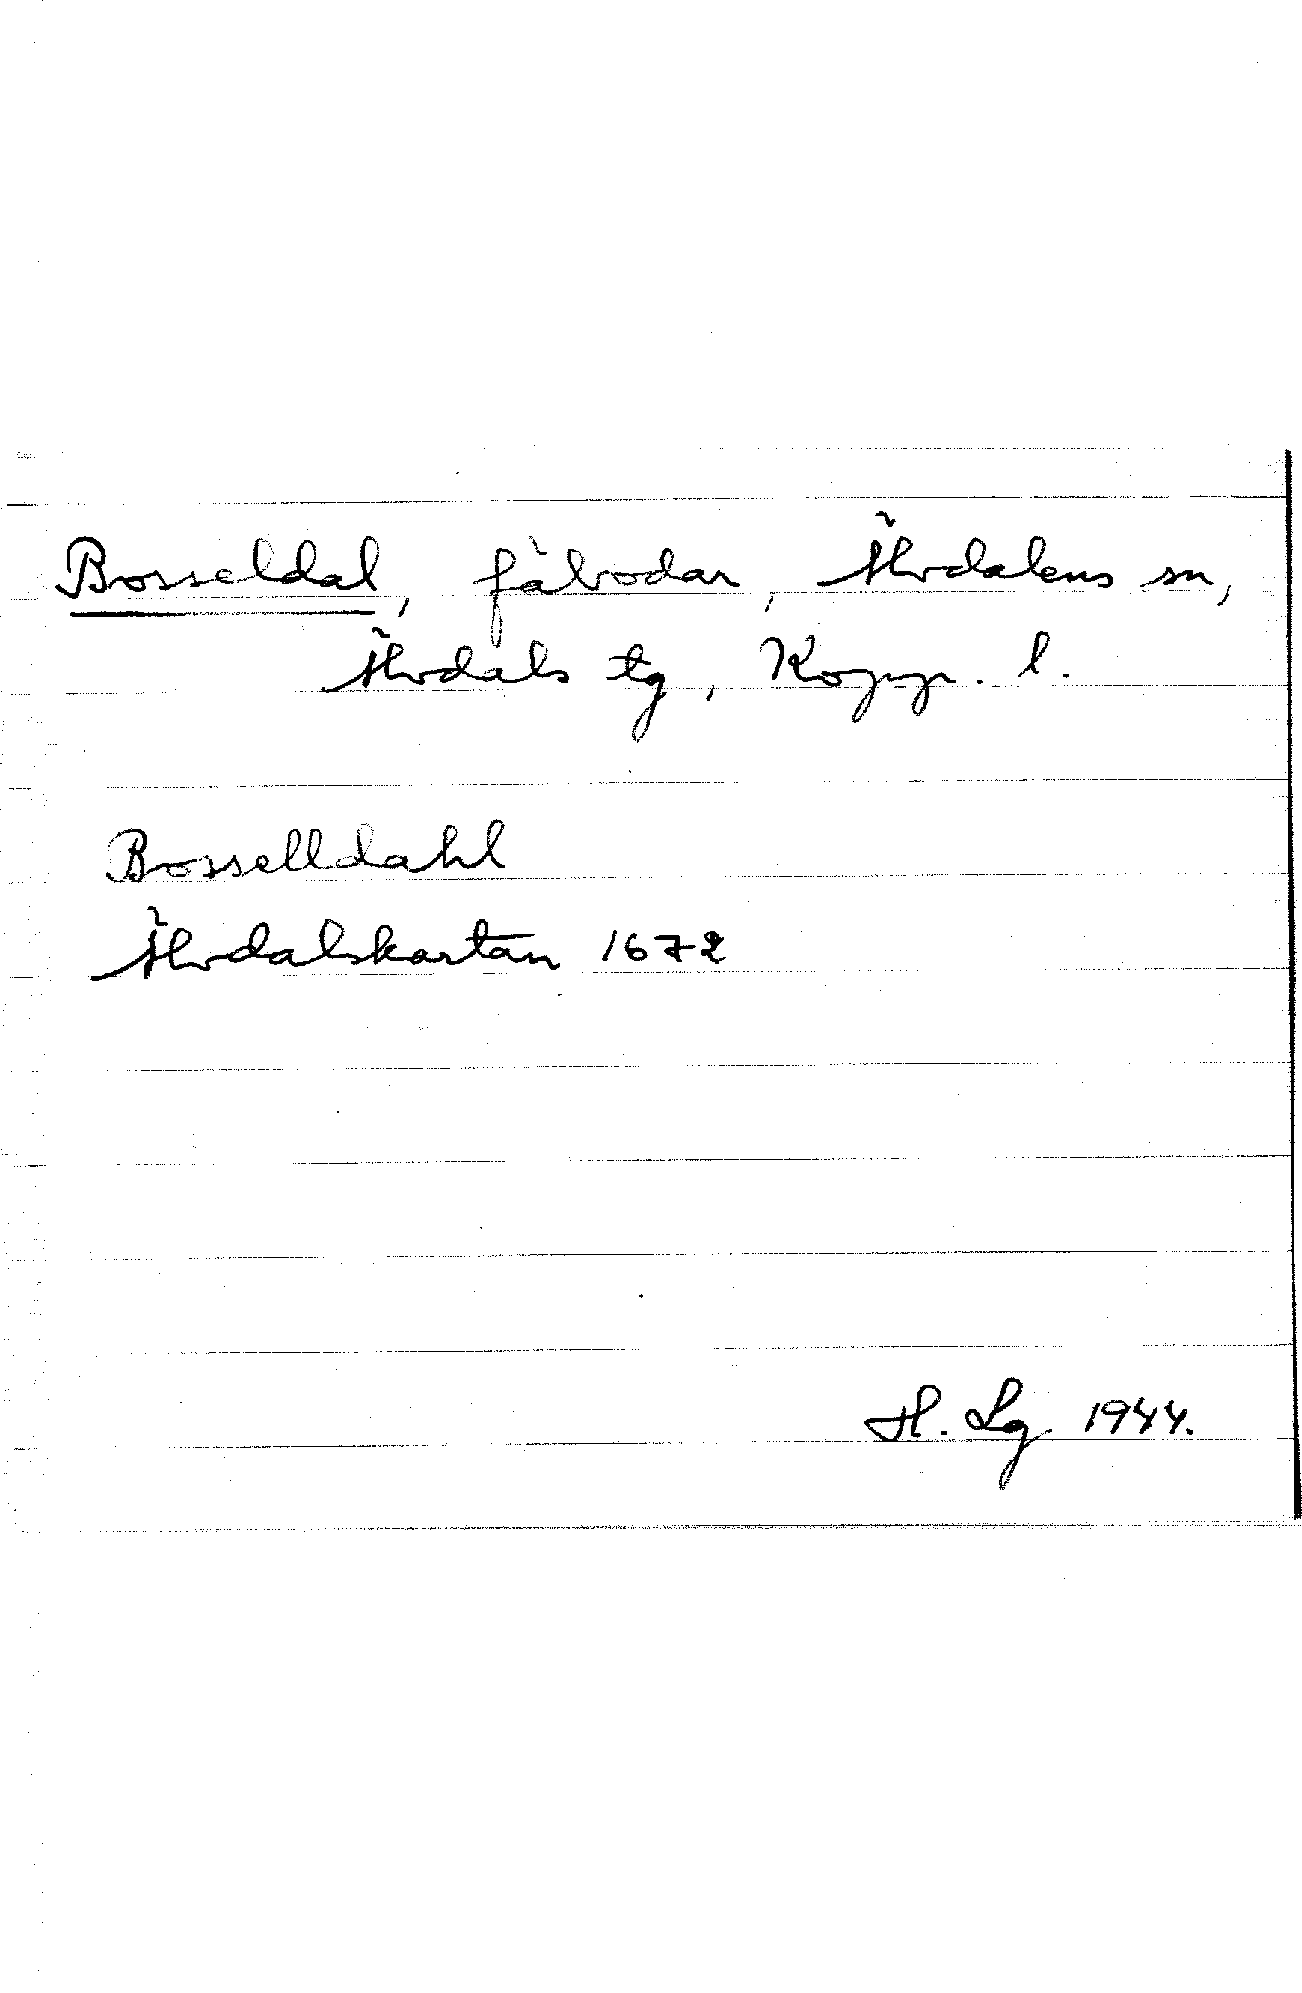 Bosseldal, fäbodar, Älvdalens sn,
Älvdals tg, Kopp. l.
Bosselldahl
Älvdalskartan 1672
H. Lg 1944.